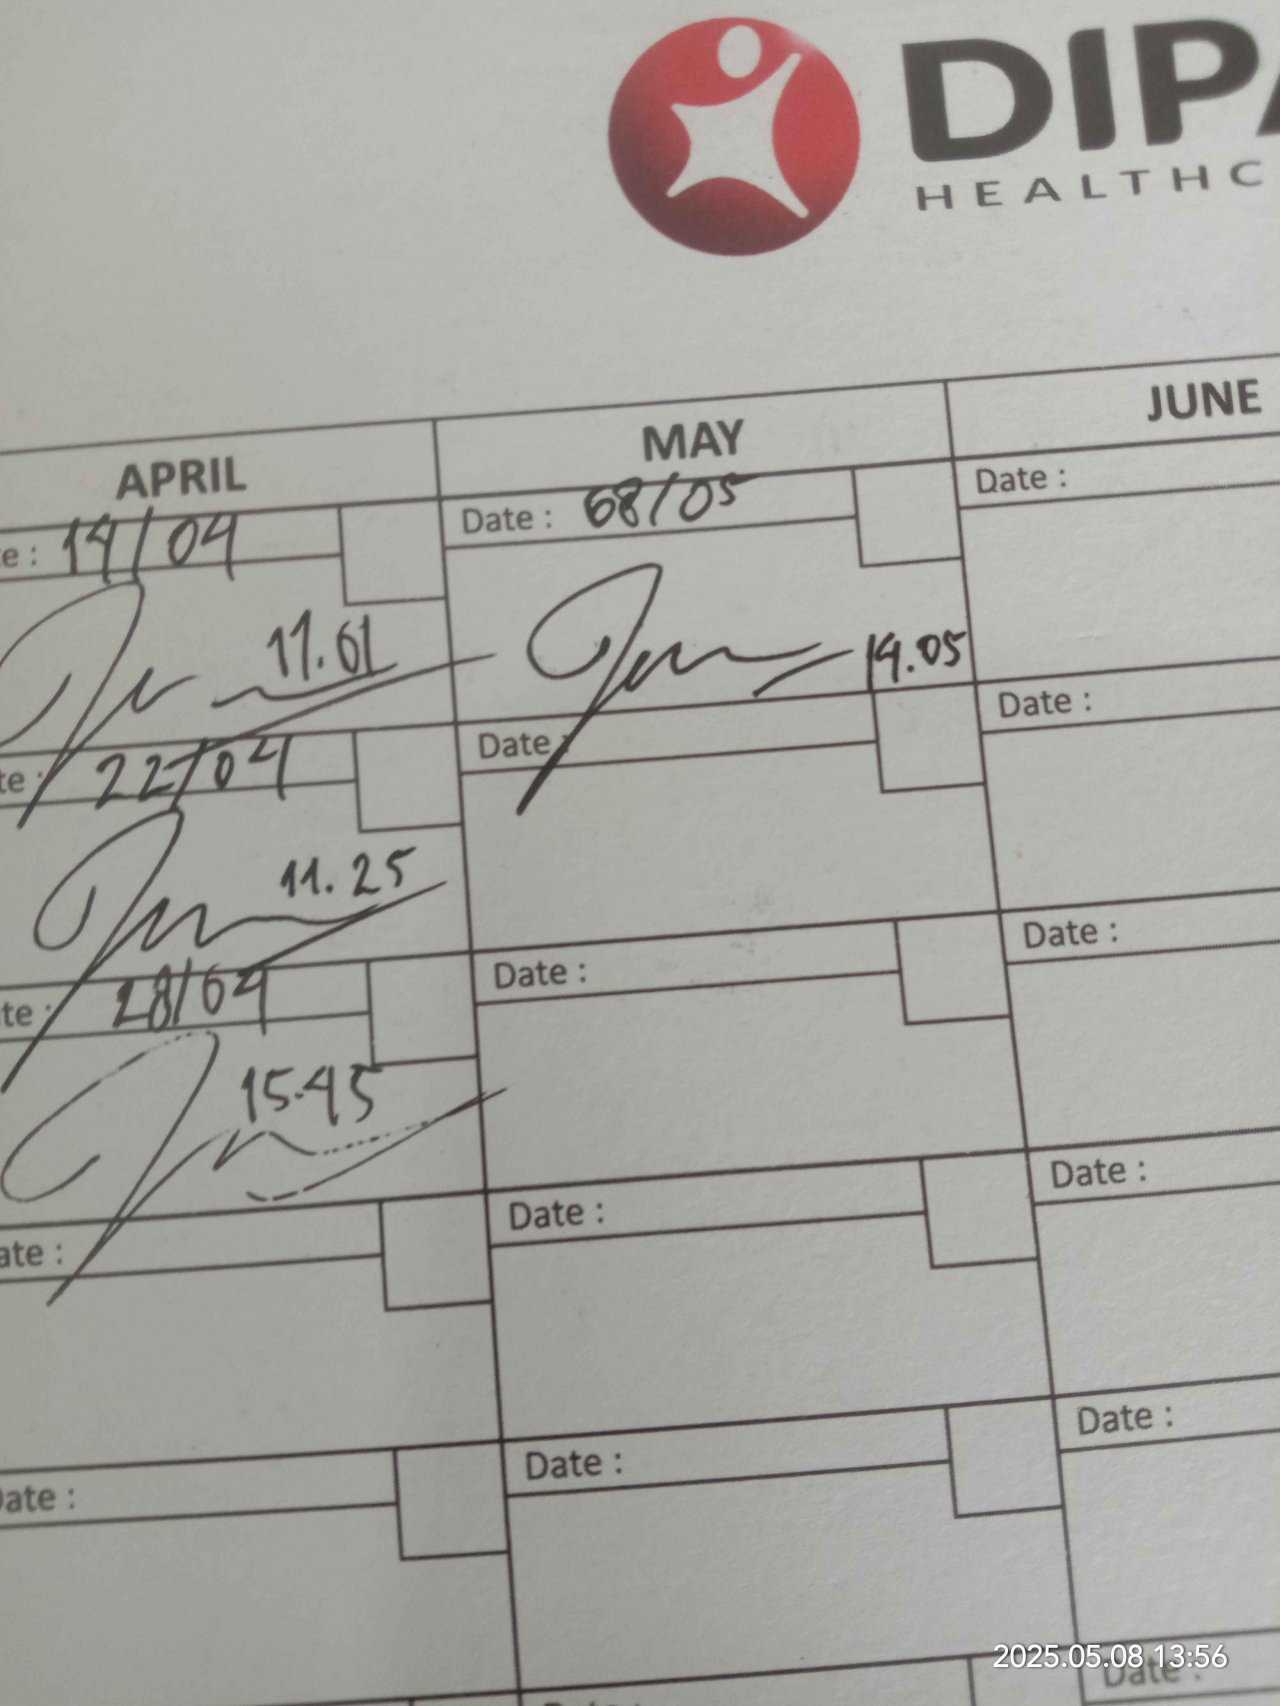 DIPA
HEALTHC
APRIL
MAY
JUNE
te : 14/04
Date : 08/05
Date :
11.01
14.05
te : 22/04
Date
Date :
11.25
te : 28/04
Date :
Date :
15.45
ate :
Date :
Date :
Date :
Date :
Date :
2025.05.08 13:56
Date :